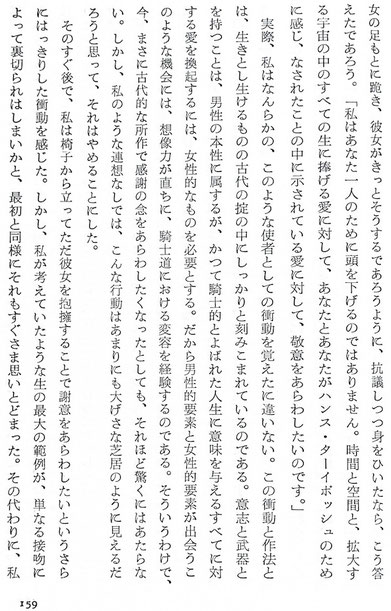 女の足もとに跪き、彼女がきっとそうするであろうように、抗議しつつ身をひいたなら、こう答
えたであろう。「私はあなた一人のために頭を下げるのではありません。時間と空間と、拡大す
る宇宙の中のすべての生に捧げる愛に対して、あなたとあなたがハンス・ターイボッシュのため
に感じ、なされたことの中に示されている愛に対して、敬意をあらわしたいのです。」
実際、私はなんらかの、このような使者としての衝動を覚えたに違いない。この衝動と作法と
は、生きとし生けるものの古代の掟の中にしっかりと刻みこまれているのである。意志と武器と
を持つことは、男性の本性に属するが、かつて騎士的とよばれた人生に意味を与えるすべてに対
する愛を換起するには、女性的なものを必要とする。だから男性的要素と女性的要素が出会うこ
のような機会には、想像力が直ちに、騎士道における変容を経験するのである。そういうわけで、
今、まさに古代的な所作で感謝の念をあらわしたくなったとしても、それほど驚くにはあたらな
い。しかし、私のような連想なしでは、こんな行動はあまりにも大げさな芝居のように見えるだ
ろうと思って、それはやめることにした。
そのすぐ後で、私は椅子から立ってただ彼女を抱擁することで謝意をあらわしたいというさら
にはっきりした衝動を感じた。しかし、私が考えていたような生の最大の範例が、単なる接吻に
よって裏切られはしまいかと、最初と同様にそれもすぐさま思いとどまった。その代わりに、私
159